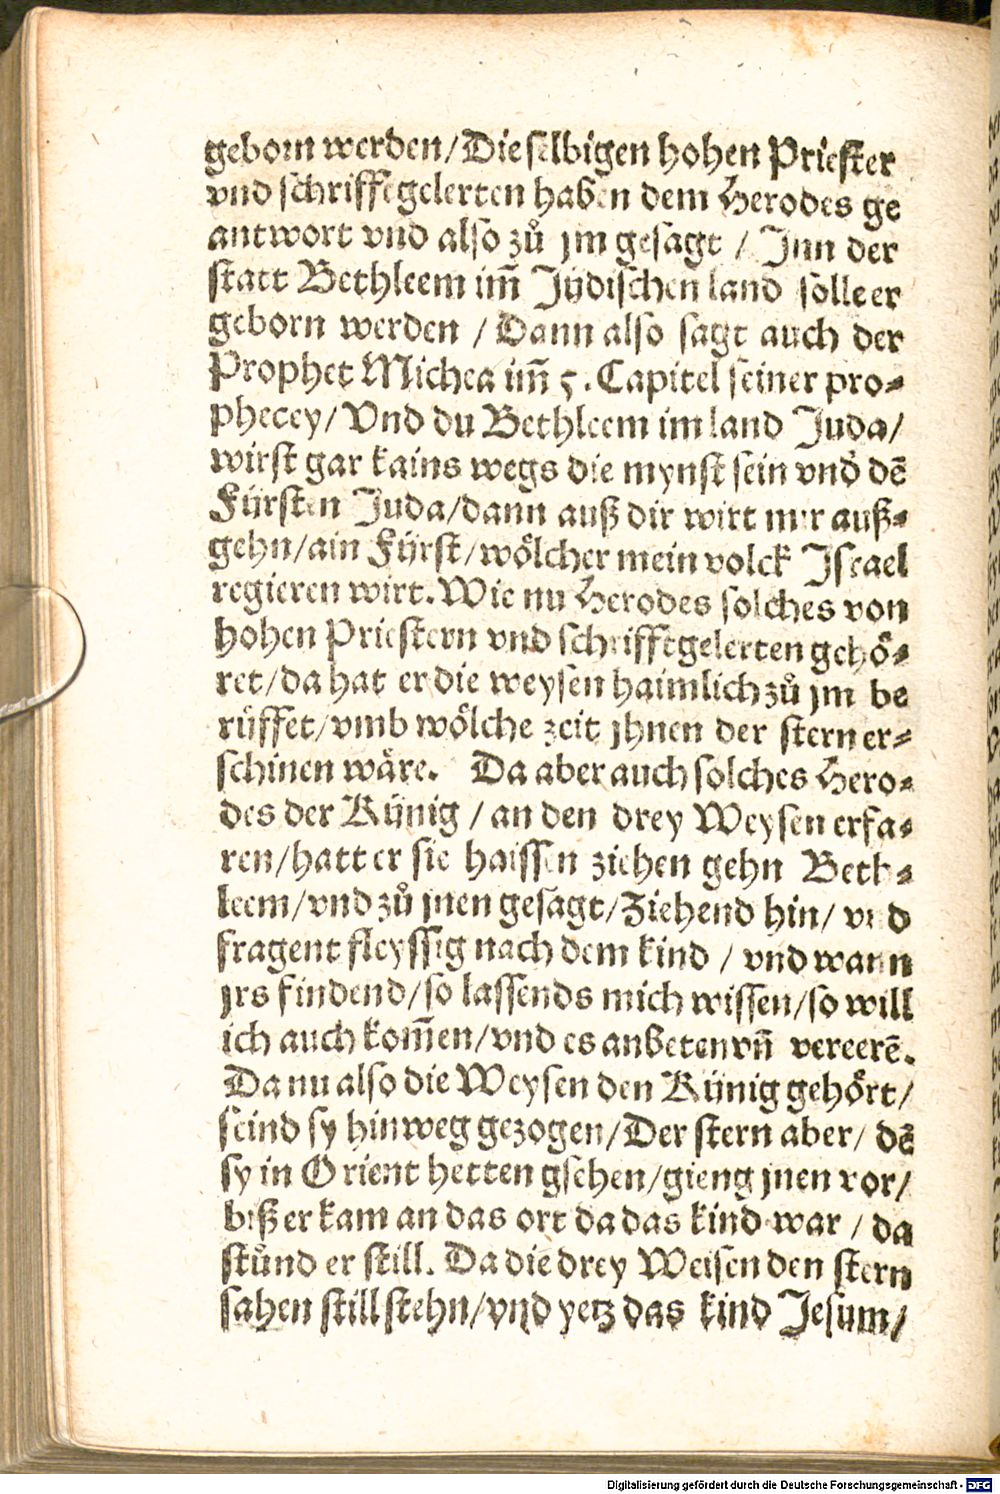 geborn werden/Dieselbigen hohen Priester
vnd schrifftgelerten haben dem Herodes ge
antwort vnd also zů jm gesagt / Jnn der
statt Bethleem im̃ Jüdischen land solle er
geborn werden / Dann also sagt auch der
Prophet Michea im̃ 5. Capitel seiner pro⸗
phecey/ Vnd du Bethleem im land Juda/
wirst gar kains wegs die mynst sein vnd̕ dē
Fürsten Juda/dann auß dir wirt mir auß⸗
gehn/ain Fürst/wölcher mein volck Jsrael
regieren wirt. Wie nu Herodes solches von
hohen Priestern vnd schrifftgelerten gehö⸗
ret/da hat er die weysen haimlich zů jm be
rüffet/vmb wölche zeit jhnen der stern er⸗
schinen wäre. Da aber auch solches Hero⸗
des der Künig / an den drey Weysen erfa⸗
ren/hatt er sie haissen ziehen gehn Beth⸗
leem/vnd zů jnen gesagt/Ziehend hin/ vnd
fragent fleyssig nach dem kind / vnd wann
jrs findend/so lassends mich wissen/so will
ich auch kom̃en/vnd es anbeten vñ vereerē.
Da nu also die Weysen den Künig gehört/
seind sy hinweg gezogen/Der stern aber/ dē
sy in Orient hetten gsehen/gieng jnen vor/
biß er kam an das ort da das kind war / da
stůnd er still. Da die drey Weisen den stern
sahen still stehn/vnd yetz das kind Jesum/
Digitalisierung gefördert durch die Deutsche Forschungsgemeinschaft - DFG